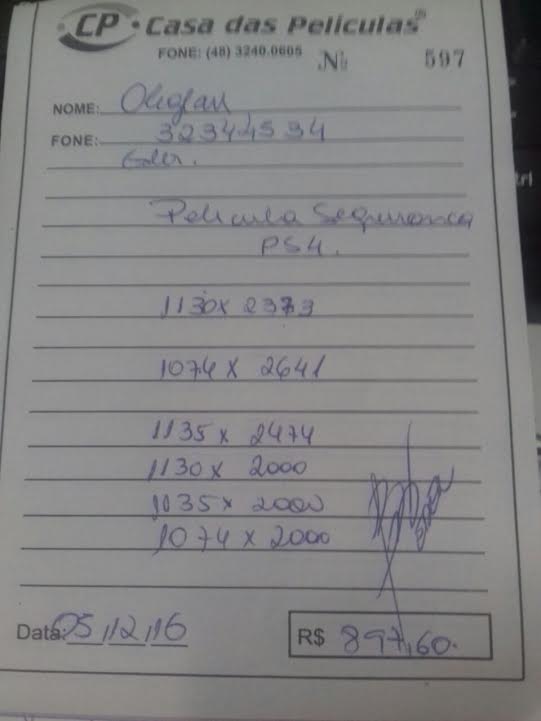 CP Casa das Películas®
FONE: (48) 3240.0605 Nº 597
NOME: Oliglau
FONE: 32344534
Eder.
Pelicula Seguranca
PS4.
1130 x 2373
1074 x 2641
1135 x 2474
1130 x 2000
1035 x 2000
1074 x 2000
Data: 05/12/16 R$ 897,60.